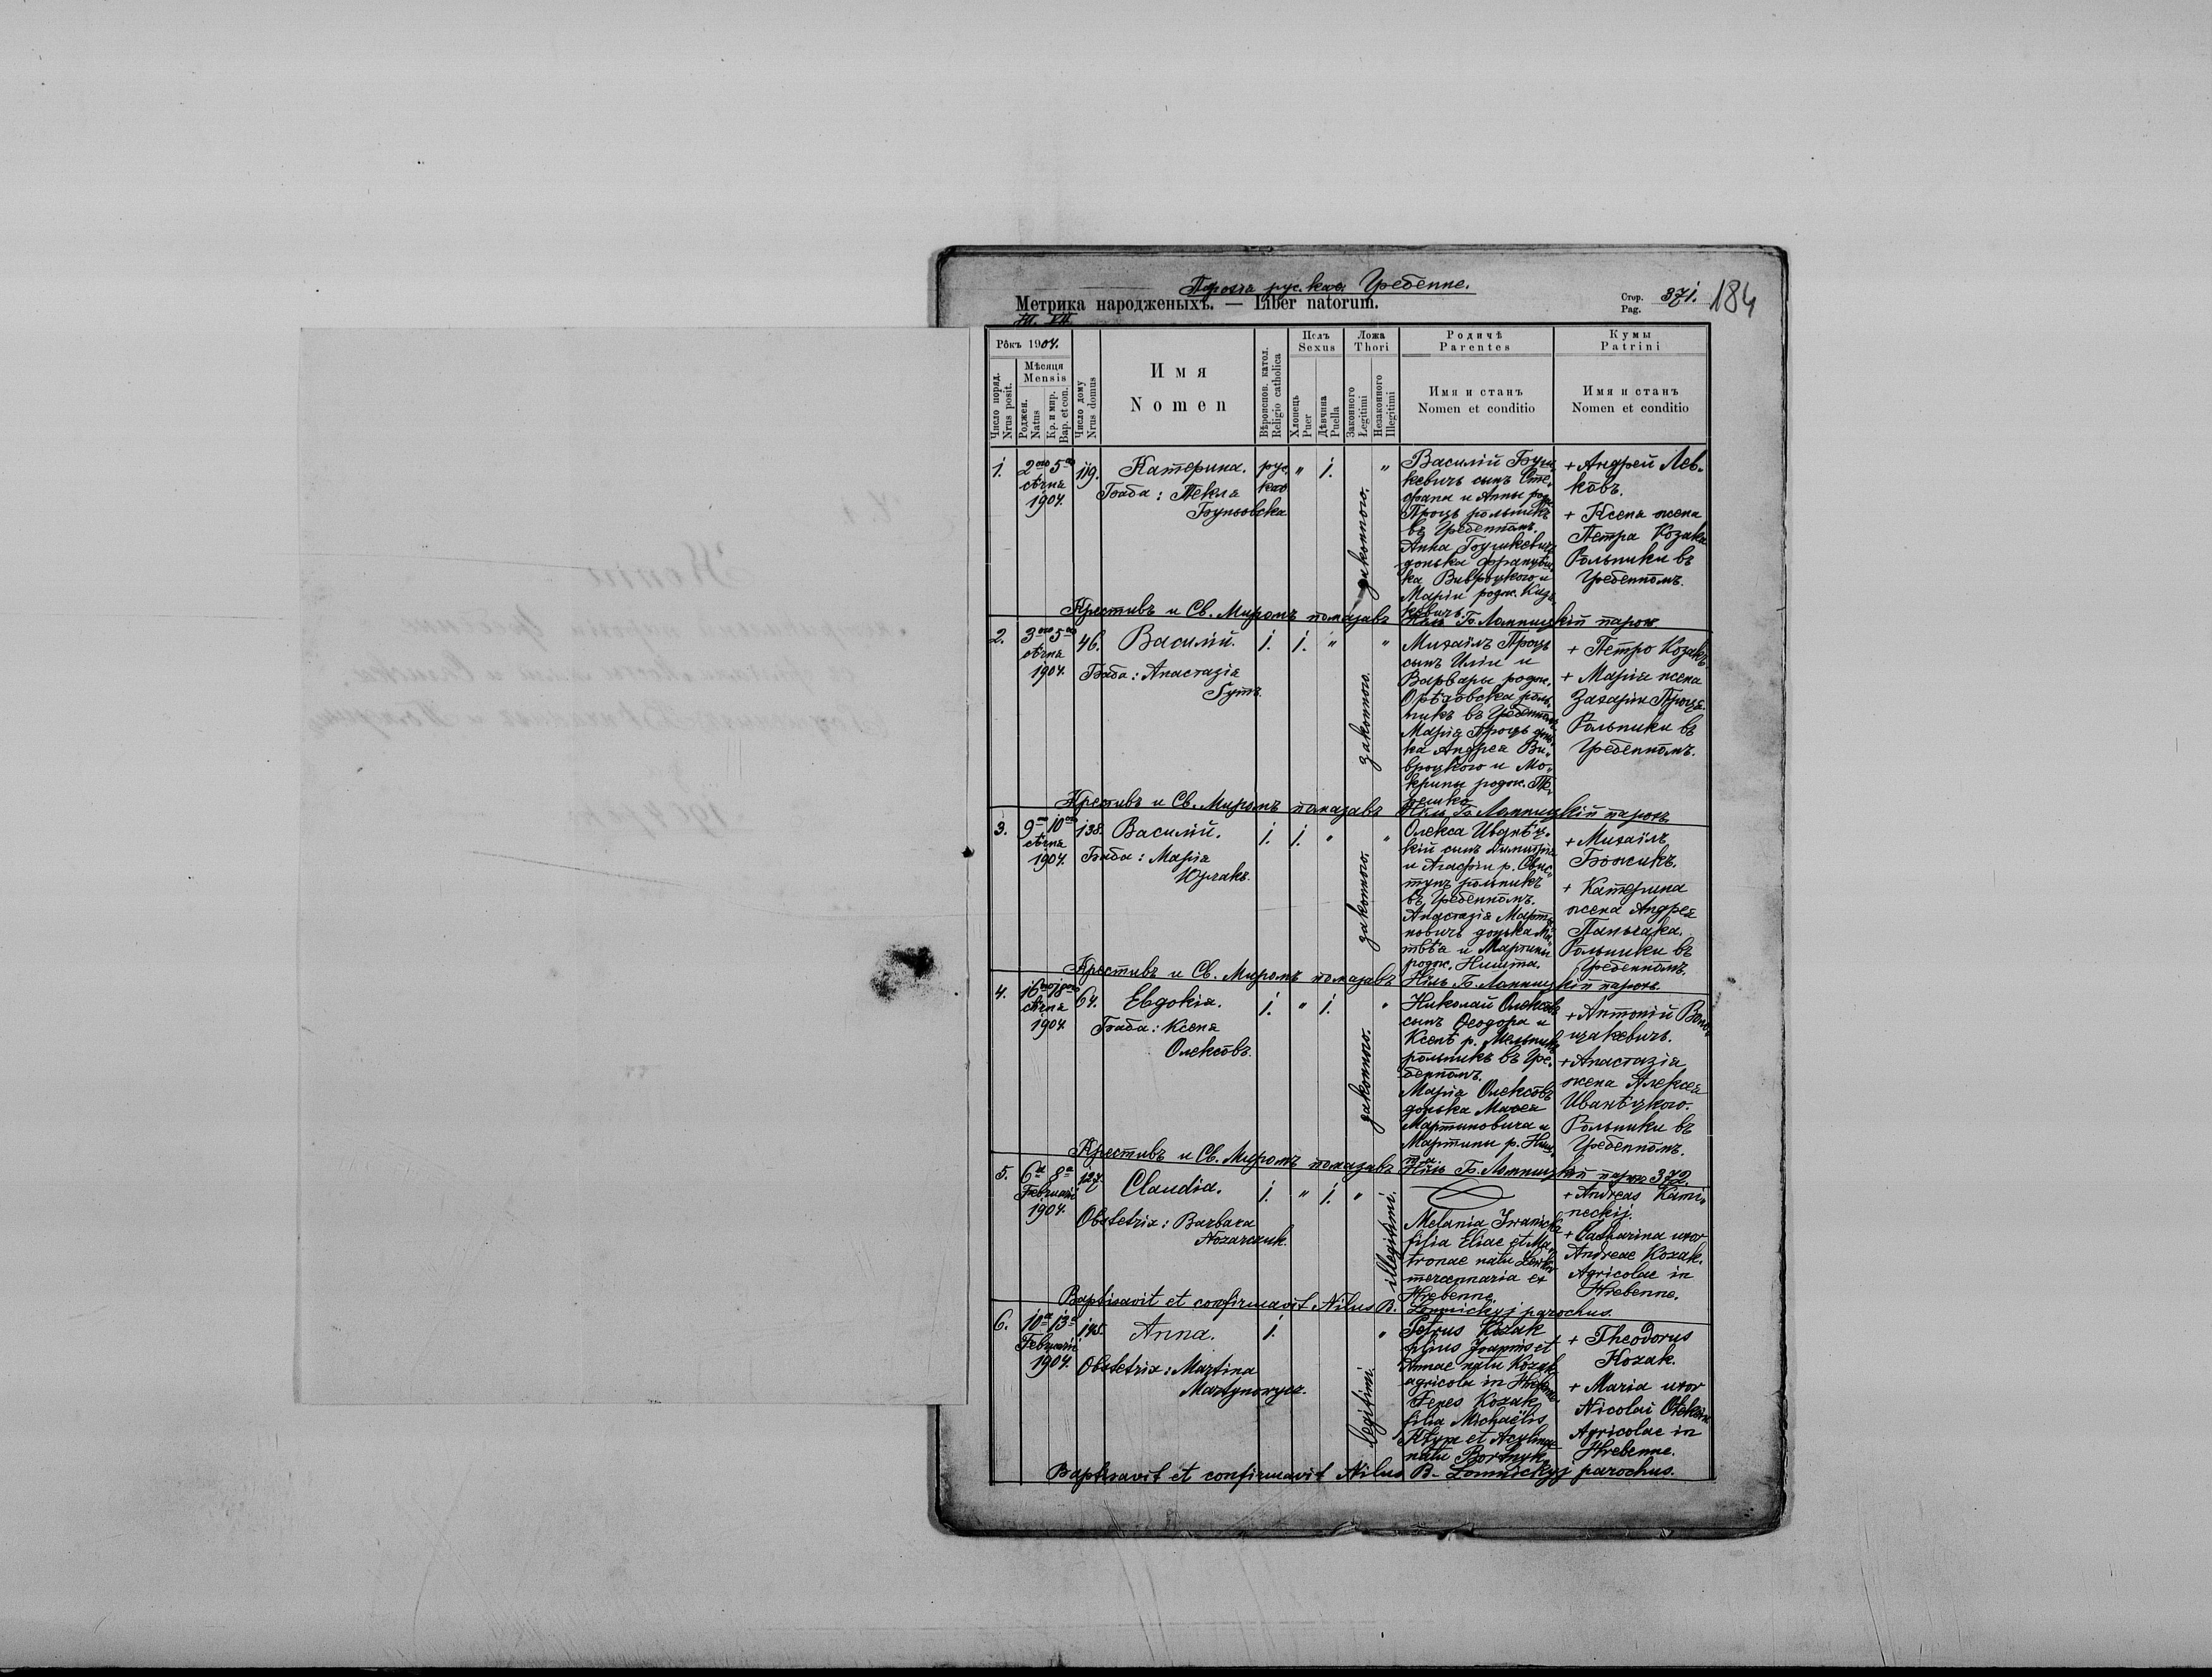 Парохія рус. кат. Гребенне.
Метрика народженыхъ. — Liber natorum.
Стор. 371. 184
Pag.
Рôкъ 1904.
Число поряд.
Nrus posit.
Мѣсяця
Mensis
Роджен.
Natus
Кр. и мир.
Bap. et con.
Число дому
Nrus domus
Имя
Nomen
Вѣроиспов. катол.
Religio catholica
Полъ
Sexus
Хлопець
Puer
Дѣвчина
Puella
Ложа
Thori
Законного
Legitimi
Незаконного
Illegitimi
Родичѣ
Parentes
Имя и станъ
Nomen et conditio
Кумы
Patrini
Имя и станъ
Nomen et conditio
1.
2ого 5ого
сѣчня
1904.
119.
Катерина.
Баба: Текля
рус.
кат.
" 1.
законного.
"
Василій
кевичь сынъ Сте-
фана и Анны родж.
Проць рôльникъ
въ Гребеннôмъ.
Анна
донька
Маріи родж.
+ Андрей Лев-
кôвъ.
+ Ксеня жена
Петра Козака
Рôльники въ
Гребеннôмъ.
Крестивъ и Св. Миромъ помазавъ Нілъ Б. Ломницкій парох.
2.
3ого 5ого
сѣчня
1904.
46.
Василій.
Баба: Анастазія
1. 1. "
законного.
"
Михаілъ Проць
сынъ Иліи и
Варвары родж.
рôль-
никъ въ Гребеннôмъ
Марія Проць донь-
ка Андрея Ви-
вроцкого и Мо-
крины родж.
+ Петро Козакъ
+ Марія жена
Захаріи Проця.
Рôльники въ
Гребеннôмъ.
Крестивъ и Св. Миромъ помазавъ Нілъ Б. Ломницкій парохъ
3.
9ого 10ого
сѣчня
1904.
138.
Василій.
Баба: Марія
Юрчакъ.
1. 1. "
законного.
"
Олекса Иванѣц-
кій сынъ Димитрія
и Агафіи р. Свис-
тунъ рôльникъ
въ Гребеннôмъ.
Анастазія Марты-
новичь донька Ма-
твѣя и Мартины
родж. Ништа.
+ Михаілъ
Божикъ.
+ Катерина
жена Андрея
Паньчака.
Рôльники въ
Гребеннôмъ.
Крестивъ и Св. Миромъ помазавъ Нілъ Б. Ломницкій парохъ.
4.
16ого 18ого
сѣчня
1904
64.
Евдокія.
Баба: Ксеня
Олексôвъ.
1. " 1.
законного.
"
Николай Олексôвъ
сынъ Ѳеодора и
Ксенѣ р. Мельникъ
рôльникъ въ Гре-
беннôмъ.
Марія Олексôвъ
донька
Мартиновича и
Мартины р. Ниш-
та.
+ Антоній
+ Анастазія
жена Алексея
Иванѣцкого.
Рôльники въ
Гребеннôмъ.
Крестивъ и Св. Миромъ помазавъ Нілъ Б. Ломницкій парох 372.
5.
6a 8a
Februarii
1904.
127.
Claudia.
Obstetrix: Barbara
Nozarczuk.
1. " 1. "
illegitimi.
Melania Iwanicka
filia Eliae et Ma-
tronae natu
mercennaria ex
Hrebenne.
+ Andreas Kami-
neckij.
+ Catharina uxor
Andreae Kozak.
Agricolae in
Hrebenne.
Baptisavit et confirmavit Nilus B. Lomnickyj parochus.
6.
10a 13a
Februarii
1904.
145.
Anna.
Obstetrix: Martina
Martynowycz.
1.
legitimi.
"
Petrus Kozak
filius Joannis et
Annae natu Kozak
agricola in Hrebenne
Kozak
filia Michaëlis
et
natu Bortnyk.
+ Theodorus
Kozak.
+ Maria uxor
Nicolai
Agricolae in
Hrebenne.
Baptisavit et confirmavit Nilus B. Lomnickyj parochus.